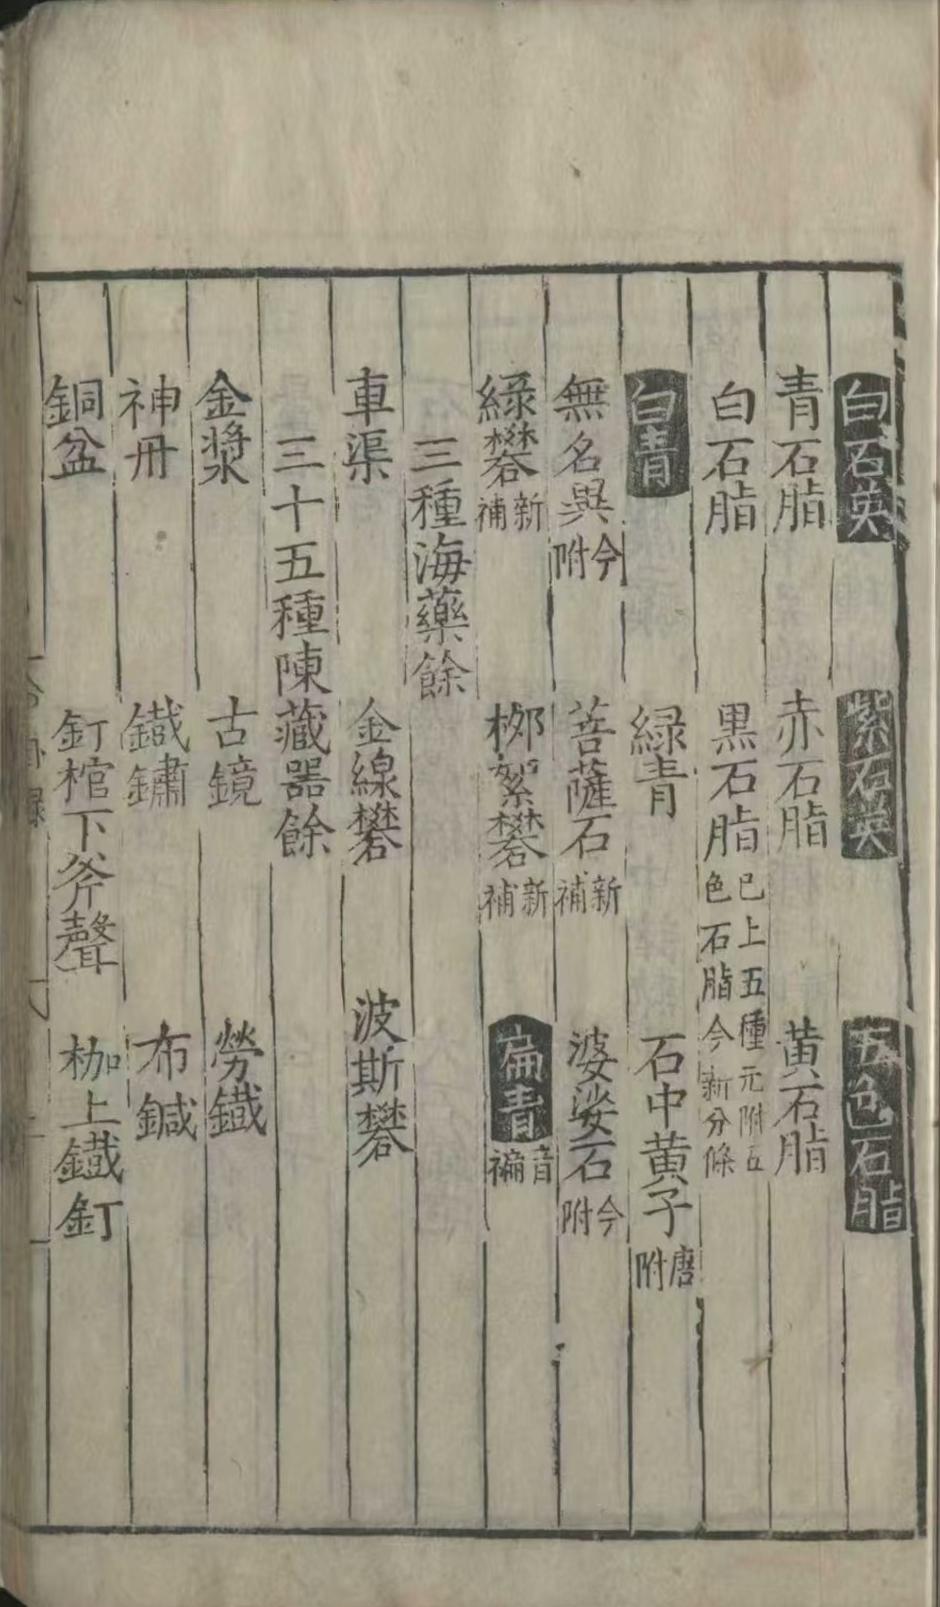 白石英 紫石英 五色石脂
青石脂 赤石脂 黃石脂
白石脂 黑石脂 已上五種元附五色石脂今新分條
白青 緑青 石中黃子 唐附
無名異 今附 菩薩石 新補 婆娑石 今附
緑礬 新補 栁絮礬 新補 扁青 音褊
三種海藥餘
車渠 金線礬 波斯礬
三十五種陳藏器餘
金漿 古鏡 勞鐵
神丹 鐵鏽 布鍼
銅盆 釘棺下斧聲 枷上鐵釘